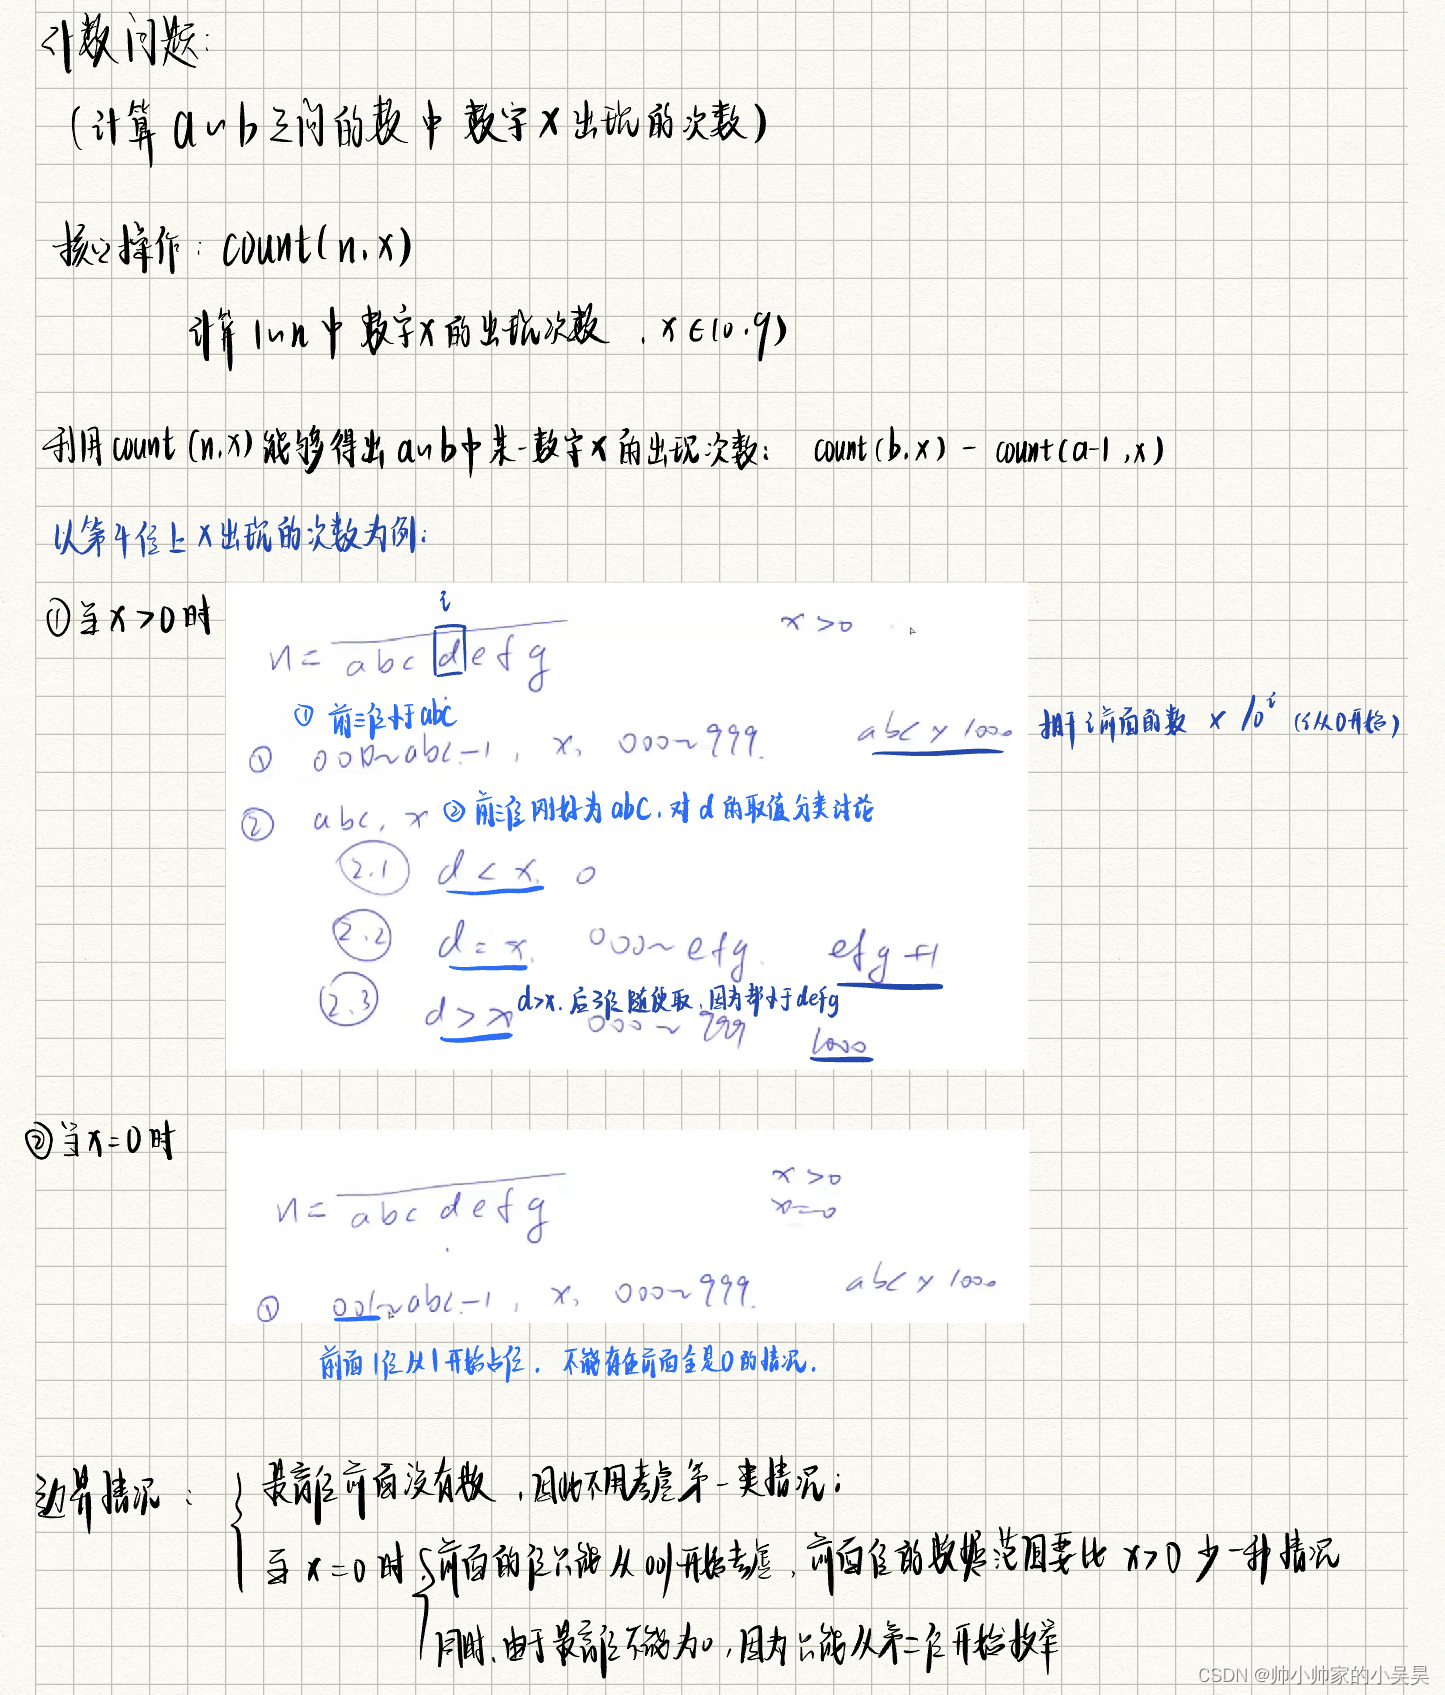 计数问题:
(计算 a~b 之间的数中 数字 x 出现的次数)
核心操作: count(n, x)
计算 1~n 中 数字 x 的出现次数, x∈(0, 9)
利用 count(n, x) 能够得出 a~b 中某一数字 x 的出现次数: count(b, x) - count(a-1, x)
以第4位上 x 出现的次数为例:
①当 x>0 时
i
n = abc d efg x>0
① 前三位小于abc
① 000~abc-1, x, 000~999. abc × 1000 相当于 i 前面的数 × 10^i (i从0开始)
② abc, x ② 前三位刚好为 abc, 对 d 的取值分类讨论
2.1 d < x. 0
2.2 d = x. 000~efg. efg+1
2.3 d > x d>x, 后3位随便取, 因为都小于defg
000~999 1000
②当 x=0 时
n = abc defg x>0
x=0
① 001~abc-1, x, 000~999. abc × 1000
前面1位从1开始占位, 不能存在前面全是0的情况.
边界情况: { 最高位前面没有数, 因此不用考虑第一类情况;
当 x=0 时 { 前面的位只能从001开始考虑, 前面位的数据范围要比 x>0 少一种情况
同时, 由于最高位不能为0, 因为只能从第二位开始枚举
CSDN @帅小帅家的小吴昊